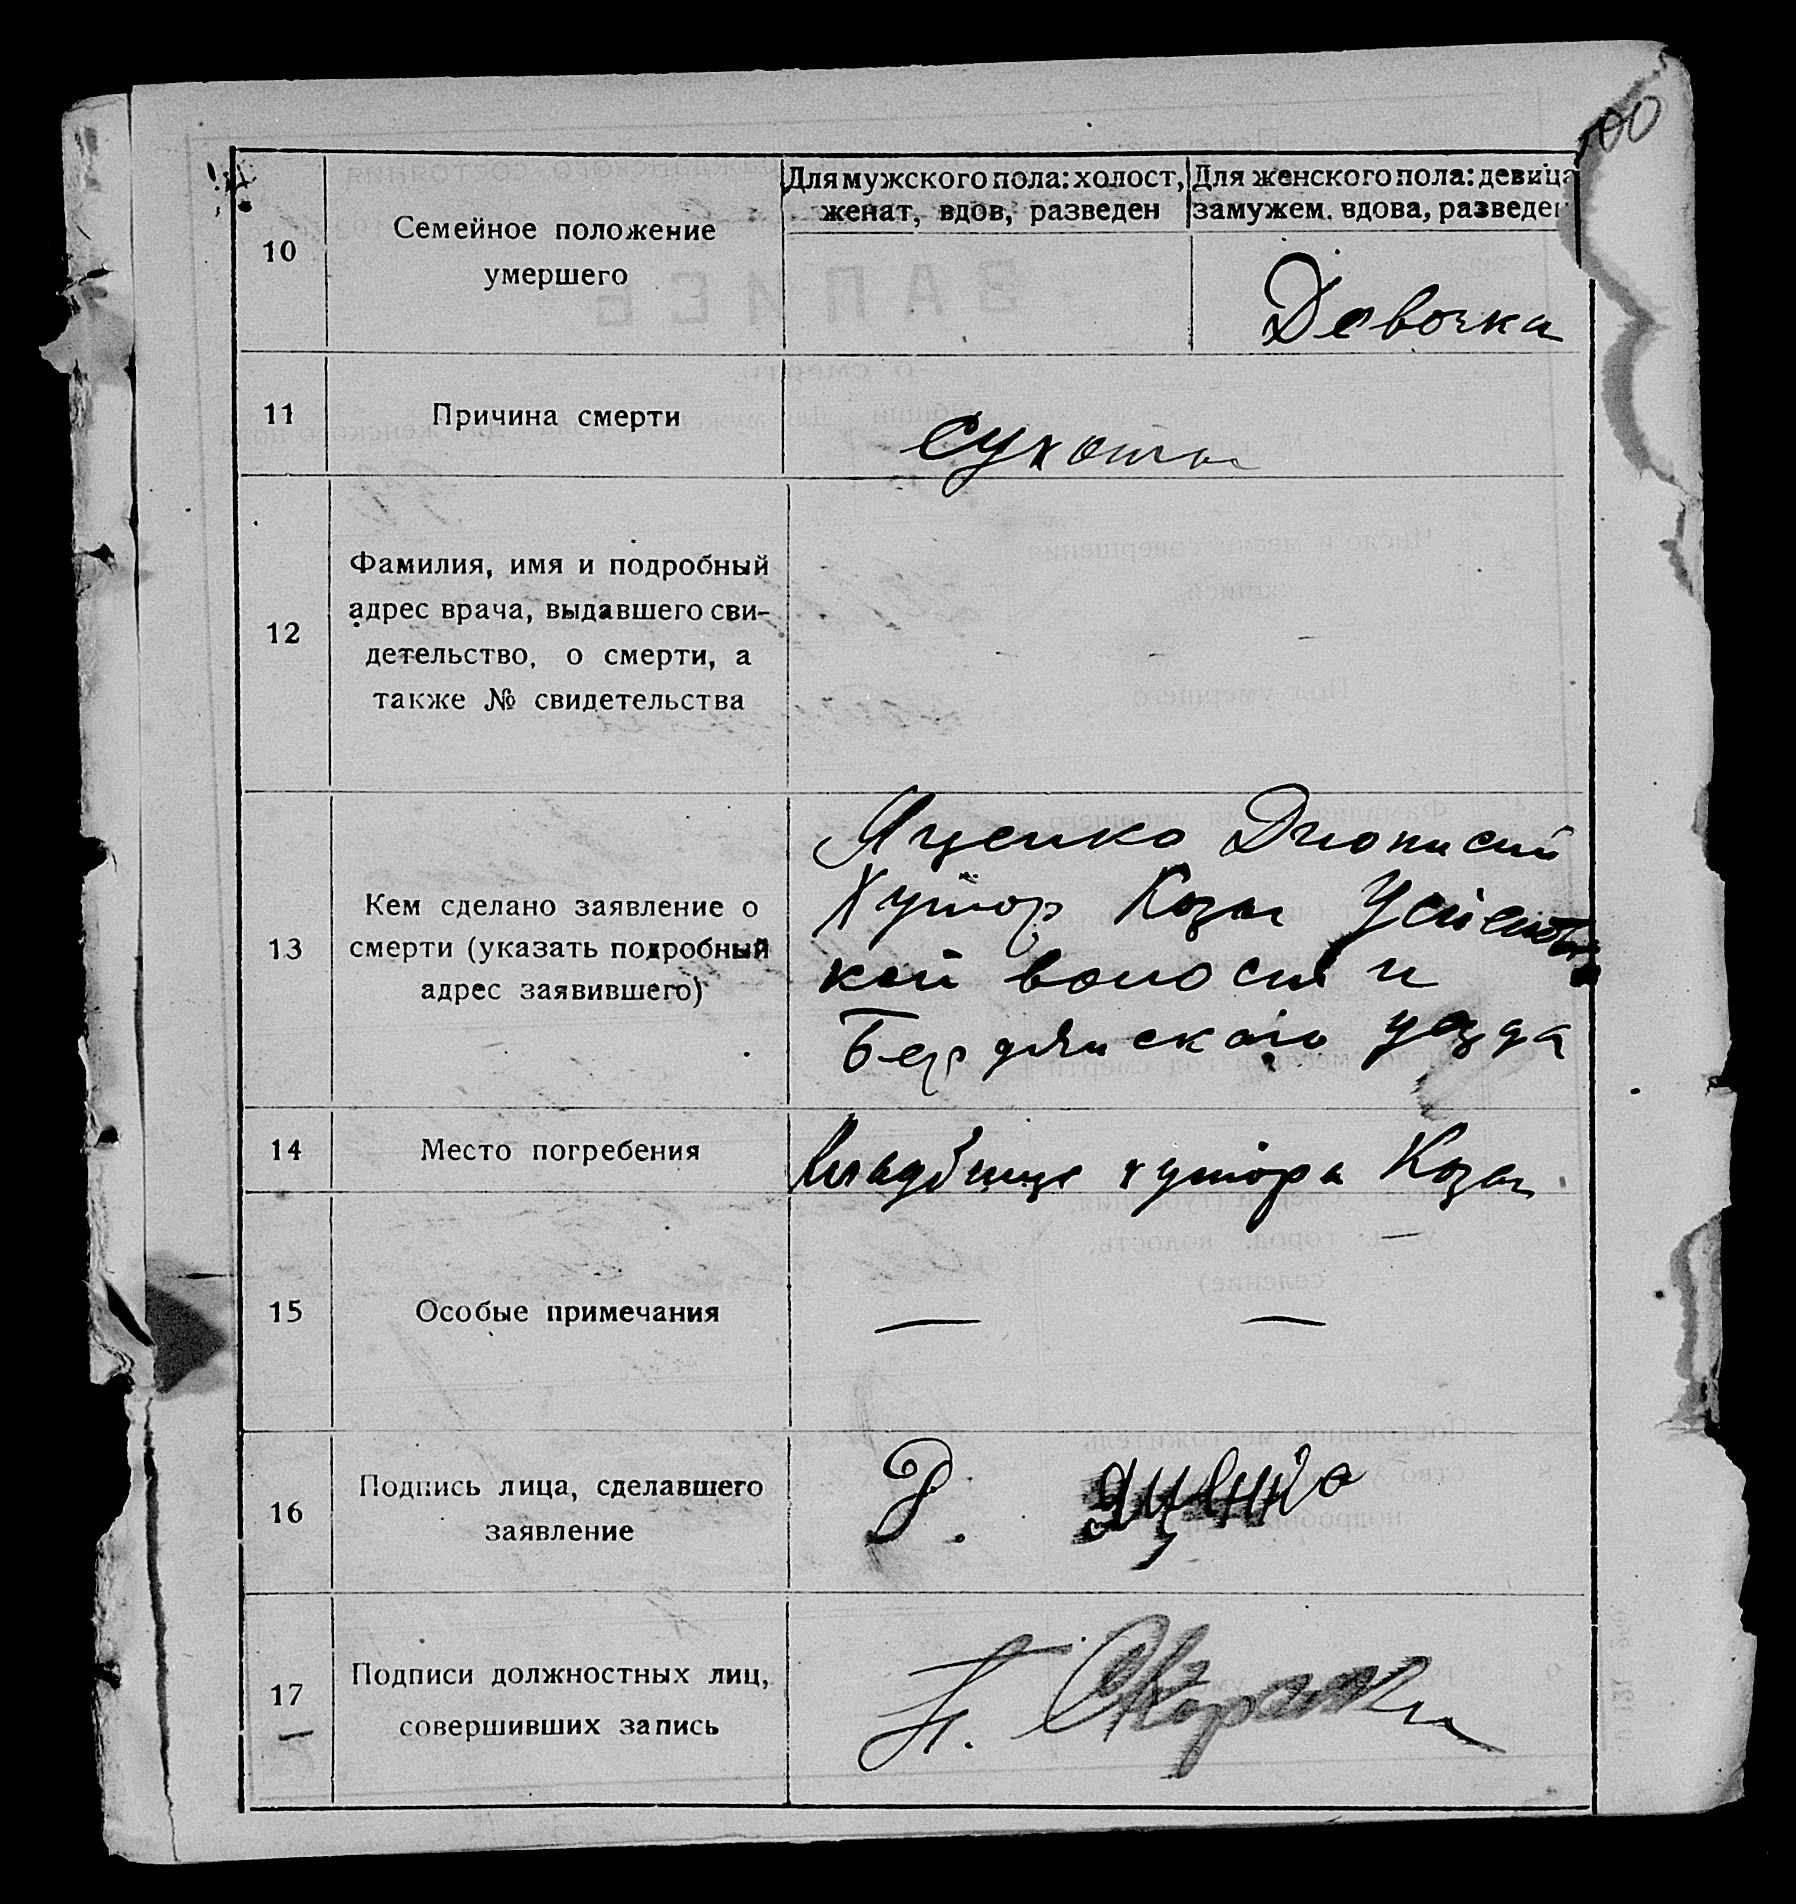 100
Для мужского пола: холост, женат, вдов, разведен
Для женского пола: девица замужем. вдова, разведен
10
Семейное положение
умершего
Девочка
11
Причина смерти
сухоты
12
Фамилия, имя и подробный
адрес врача, выдавшего сви-
детельство, о смерти, а
также № свидетельства
13
Кем сделано заявление о
смерти (указать подробный
адрес заявившего)
Яценко Дионисий
Хутор Козы
кой волости
Бердянского уезда
14
Место погребения
кладбище хутора Козы
15
Особые примечания
— —
16
Подпись лица, сделавшего
заявление
Яценко
17
Подписи должностных лиц,
совершивших запись